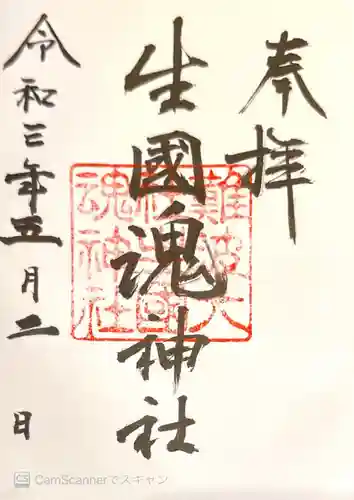 奉拝
生國魂神社
令和三年五月二日
難波大
社生國
魂神社
CS CamScannerでスキャン